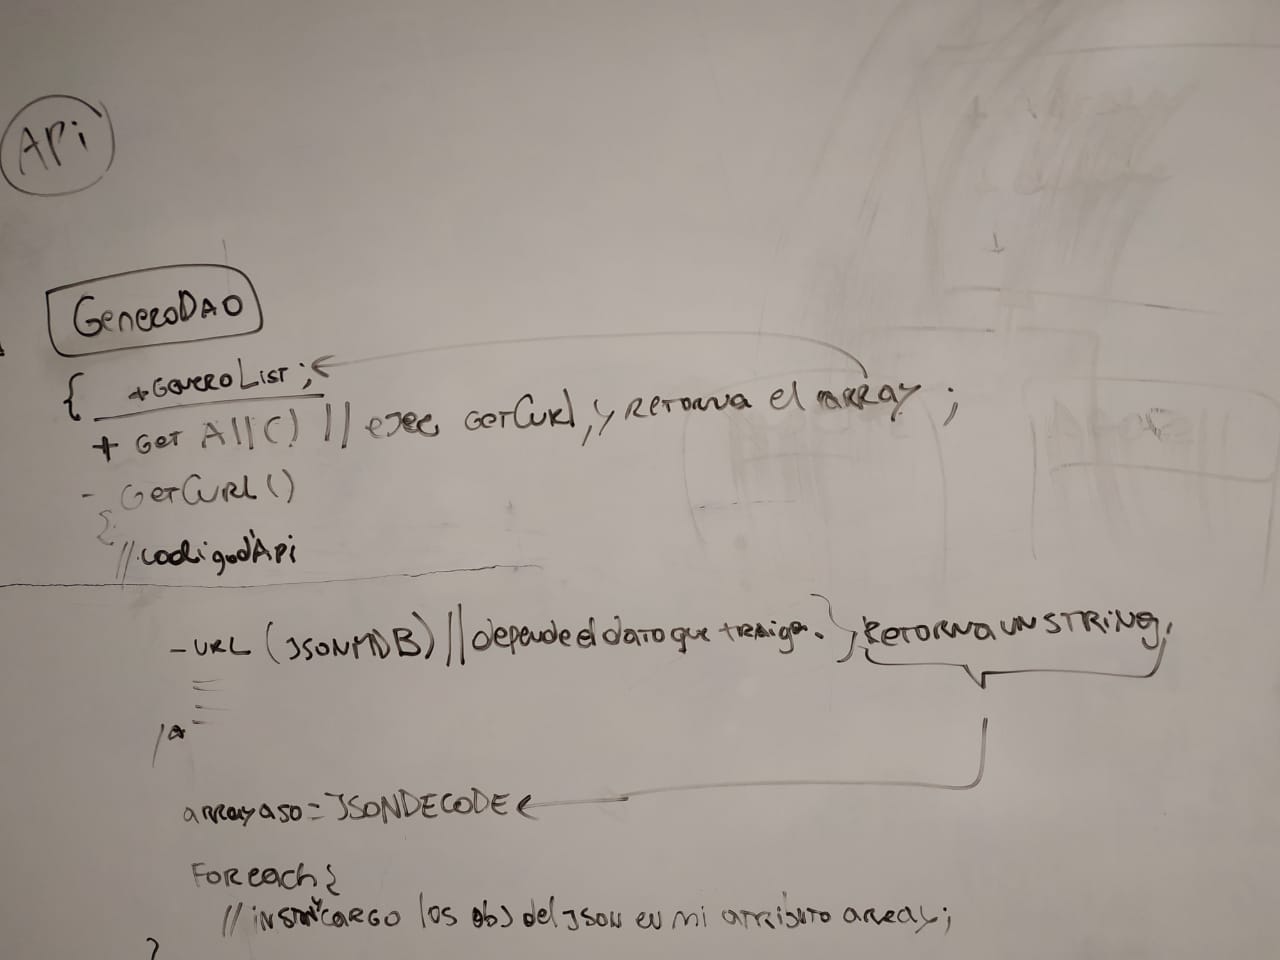 API
GeneroDAO
{ +GeneroList;
+ Get All() // ejec GetCurl, y retorna el array;
- GetCURL()
{
//codigod'Api
- URL (JSONMDB) // depende el dato que traiga. } RETORNA UN STRING,
array aso = JSONDECODE
Foreach {
// inst y CARGO los obj del JSON en mi atributo array;
}